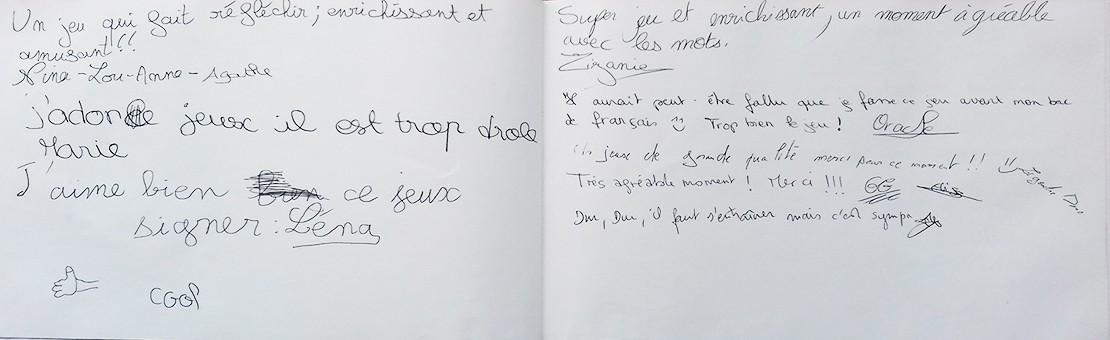 Un jeu qui fait réfléchir ; enrichissant et
amusant !!
Nina - Lou-Anne - Agathe
j'adore jeux il est trop drole
Marie
J'aime bien ce jeux
signer : Léna
cool
Super jeu et enrichissant, un moment àgréable
avec les mots.
Zizanie
aurait peut-être fallu que je fasse ce jeu avant mon bac
de français Trop bien le jeu ! Oracle
Un jeux de grande qualité merci pour ce moment !!
Très agréable moment ! Merci !!! GG
Dur, Dur, il faut s'entraîner mais c'est sympa